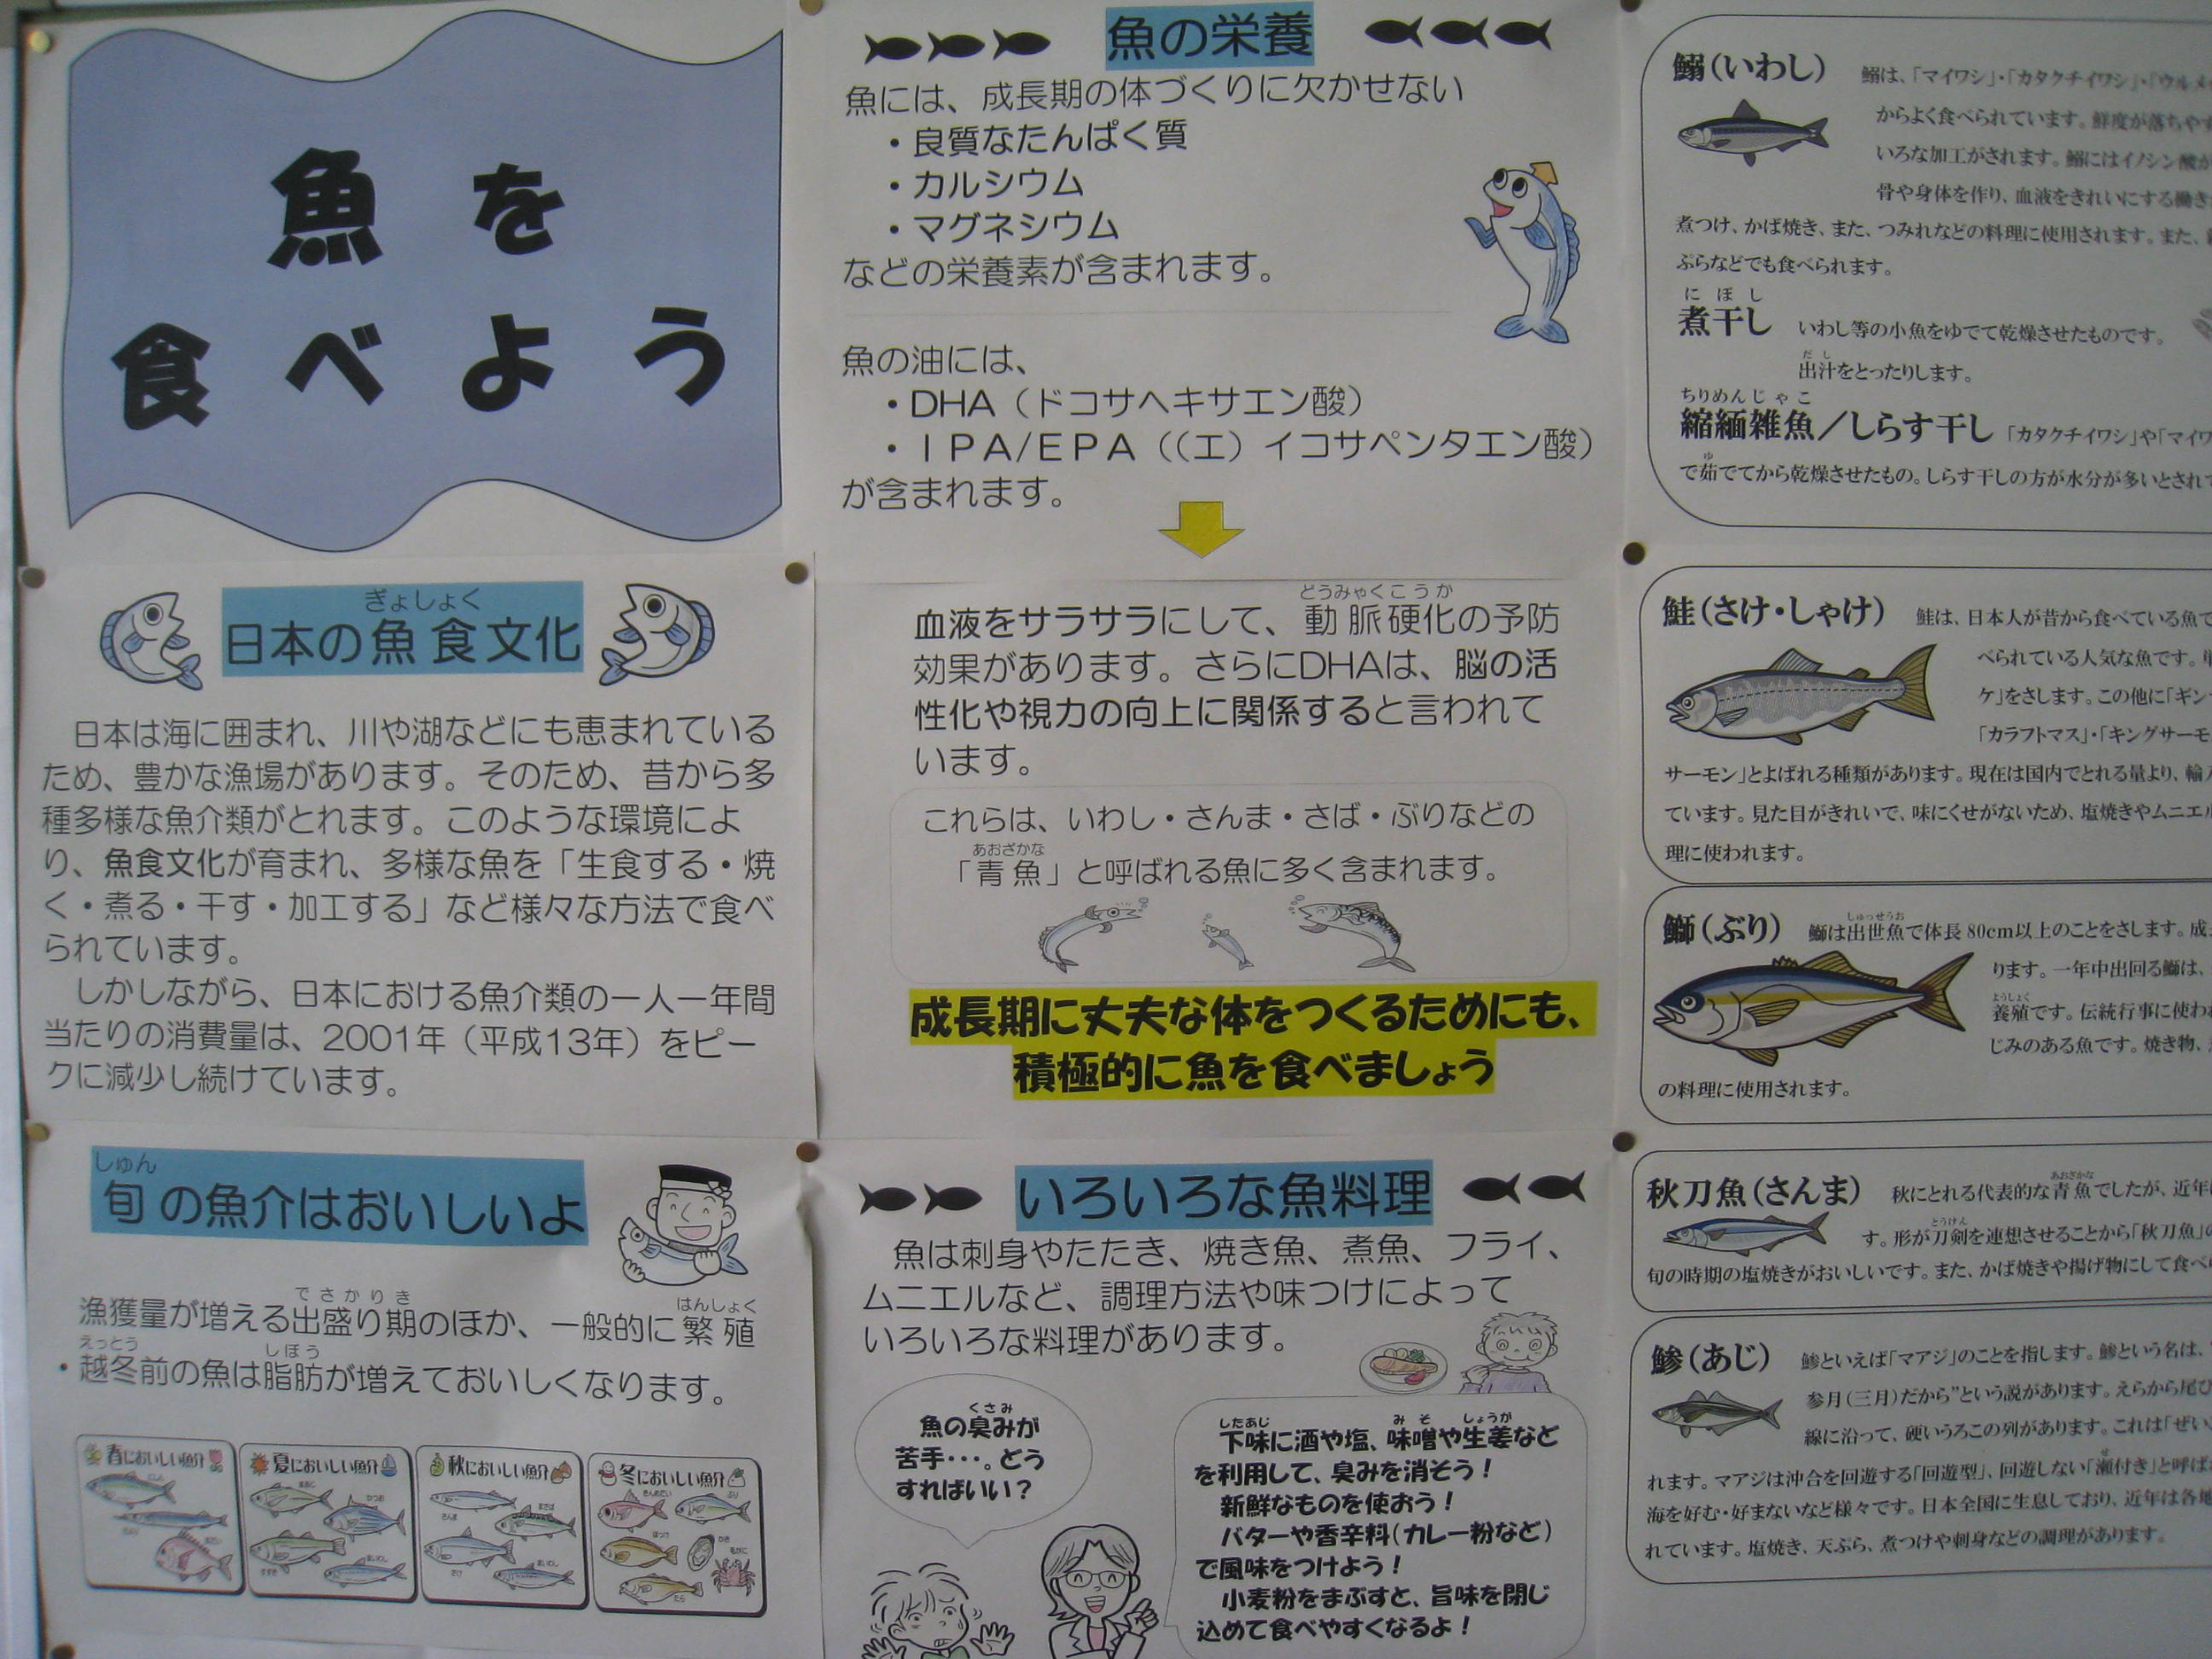 魚を
食べよう
ぎょしょく
日本の魚食文化
日本は海に囲まれ、川や湖などにも恵まれている
ため、豊かな漁場があります。そのため、昔から多
種多様な魚介類がとれます。このような環境によ
り、魚食文化が育まれ、多様な魚を「生食する・焼
く・煮る・干す・加工する」など様々な方法で食べ
られています。
しかしながら、日本における魚介類の一人一年間
当たりの消費量は、2001年(平成13年)をピー
クに減少し続けています。
しゅん
旬の魚介はおいしいよ
でさかりき はんしょく
漁獲量が増える出盛り期のほか、一般的に繁殖
えっとう しぼう
・越冬前の魚は脂肪が増えておいしくなります。
春においしい魚介
夏においしい魚介
秋においしい魚介
冬においしい魚介
魚の栄養
魚には、成長期の体づくりに欠かせない
・良質なたんぱく質
・カルシウム
・マグネシウム
などの栄養素が含まれます。
魚の油には、
・DHA(ドコサヘキサエン酸)
・IPA/EPA((エ)イコサペンタエン酸)
が含まれます。
どうみゃくこうか
血液をサラサラにして、動脈硬化の予防
効果があります。さらにDHAは、脳の活
性化や視力の向上に関係すると言われて
います。
これらは、いわし・さんま・さば・ぶりなどの
あおざかな
「青魚」と呼ばれる魚に多く含まれます。
成長期に丈夫な体をつくるためにも、
積極的に魚を食べましょう
いろいろな魚料理
魚は刺身やたたき、焼き魚、煮魚、フライ、
ムニエルなど、調理方法や味つけによって
いろいろな料理があります。
くさみ
魚の臭みが
苦手・・・。どう
すればいい?
したあじ みそ しょうが
下味に酒や塩、味噌や生姜など
を利用して、臭みを消そう!
新鮮なものを使おう!
バターや香辛料(カレー粉など)
で風味をつけよう!
小麦粉をまぶすと、旨味を閉じ
込めて食べやすくなるよ!
鰯(いわし) 鰯は、「マイワシ」・「カタクチイワシ」・「ウルメ
からよく食べられています。鮮度が落ちやす
いろな加工がされます。鰯にはイノシン酸が
骨や身体を作り、血液をきれいにする働き
煮つけ、かば焼き、また、つみれなどの料理に使用されます。また、
ぷらなどでも食べられます。
にぼし
煮干し いわし等の小魚をゆでて乾燥させたものです。
だし
出汁をとったりします。
ちりめんじゃこ
縮緬雑魚/しらす干し 「カタクチイワシ」や「マイワ
ゆ
で茹でてから乾燥させたもの。しらす干しの方が水分が多いとされて
鮭(さけ・しゃけ) 鮭は、日本人が昔から食べている魚で
べられている人気な魚です。
ケ」をさします。この他に「ギン
「カラフトマス」・「キングサーモ
サーモン」とよばれる種類があります。現在は国内でとれる量より、輸入
ています。見た目がきれいで、味にくせがないため、塩焼きやムニエル
理に使われます。
しゅっせうお
鰤(ぶり) 鰤は出世魚で体長80cm以上のことをさします。成
ります。一年中出回る鰤は、
ようしょく
養殖です。伝統行事に使わ
じみのある魚です。焼き物、
の料理に使用されます。
あおざかな
秋刀魚(さんま) 秋にとれる代表的な青魚でしたが、近年
とうけん
す。形が刀剣を連想させることから「秋刀魚」の
旬の時期の塩焼きがおいしいです。また、かば焼きや揚げ物にして食べ
鯵(あじ) 鯵といえば「マアジ」のことを指します。鯵という名は、
参月(三月)だから”という説があります。えらから尾び
線に沿って、硬いうろこの列があります。これは「ぜい
せ
れます。マアジは沖合を回遊する「回遊型」、回遊しない「瀬付き」と呼ば
海を好む・好まないなど様々です。日本全国に生息しており、近年は各地
れています。塩焼き、天ぷら、煮つけや刺身などの調理があります。